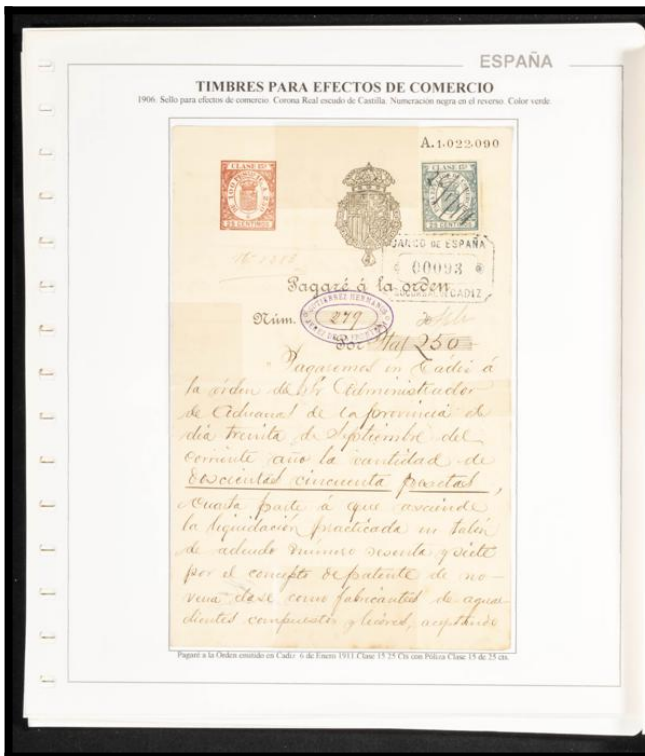 ESPAÑA
TIMBRES PARA EFECTOS DE COMERCIO
1906. Sello para efectos de comercio. Corona Real escudo de Castilla. Numeración negra en el reverso. Color verde.
A.1.022.090
CLASE 15ª
25 CENTIMOS
CLASE 15ª
25 CENTIMOS
BANCO DE ESPAÑA
00093
SUCURSAL DE CADIZ
Pagaré á la orden
GUTIÉRREZ HERMANOS
Núm. 279
Por Ptas 250
Pagaremos en Cádiz á
la orden del Sr Administrador
de Aduanas de la provincia el
dia treinta de Septiembre del
corriente año la cantidad de
doscientas cincuenta pesetas,
cuarta parte á que asciende
la liquidación practicada en talón
de adeudo número sesenta y siete
por el concepto de patente de no-
vena clase como fabricantes de aguar-
dientes compuestos y licores, aceptando
Pagaré a la Orden emitido en Cadiz 6 de Enero 1911 Clase 15 25 Cts con Póliza Clase 15 de 25 cts.